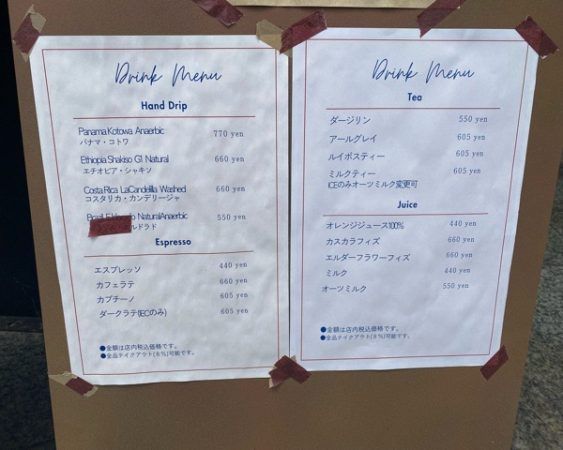 Drink Menu
Hand Drip
Panama Kotowa Anaerbic 770 yen
パナマ・コトワ
Ethiopia Shakiso G1 Natural 660 yen
エチオピア・シャキソ
Costa Rica LaCandelilla Washed 660 yen
コスタリカ・カンデリージャ
NaturalAnaerbic 550 yen
ルドラド
Espresso
エスプレッソ 440 yen
カフェラテ 660 yen
カプチーノ 605 yen
ダークラテ(ICEのみ) 605 yen
●金額は店内税込価格です。
●全品テイクアウト(8%)可能です。
Drink Menu
Tea
ダージリン 550 yen
アールグレイ 605 yen
ルイボスティー 605 yen
ミルクティー 605 yen
ICEのみオーツミルク変更可
Juice
オレンジジュース100% 440 yen
カスカラフィズ 660 yen
エルダーフラワーフィズ 660 yen
ミルク 440 yen
オーツミルク 550 yen
●金額は店内税込価格です。
●全品テイクアウト(8%)可能です。